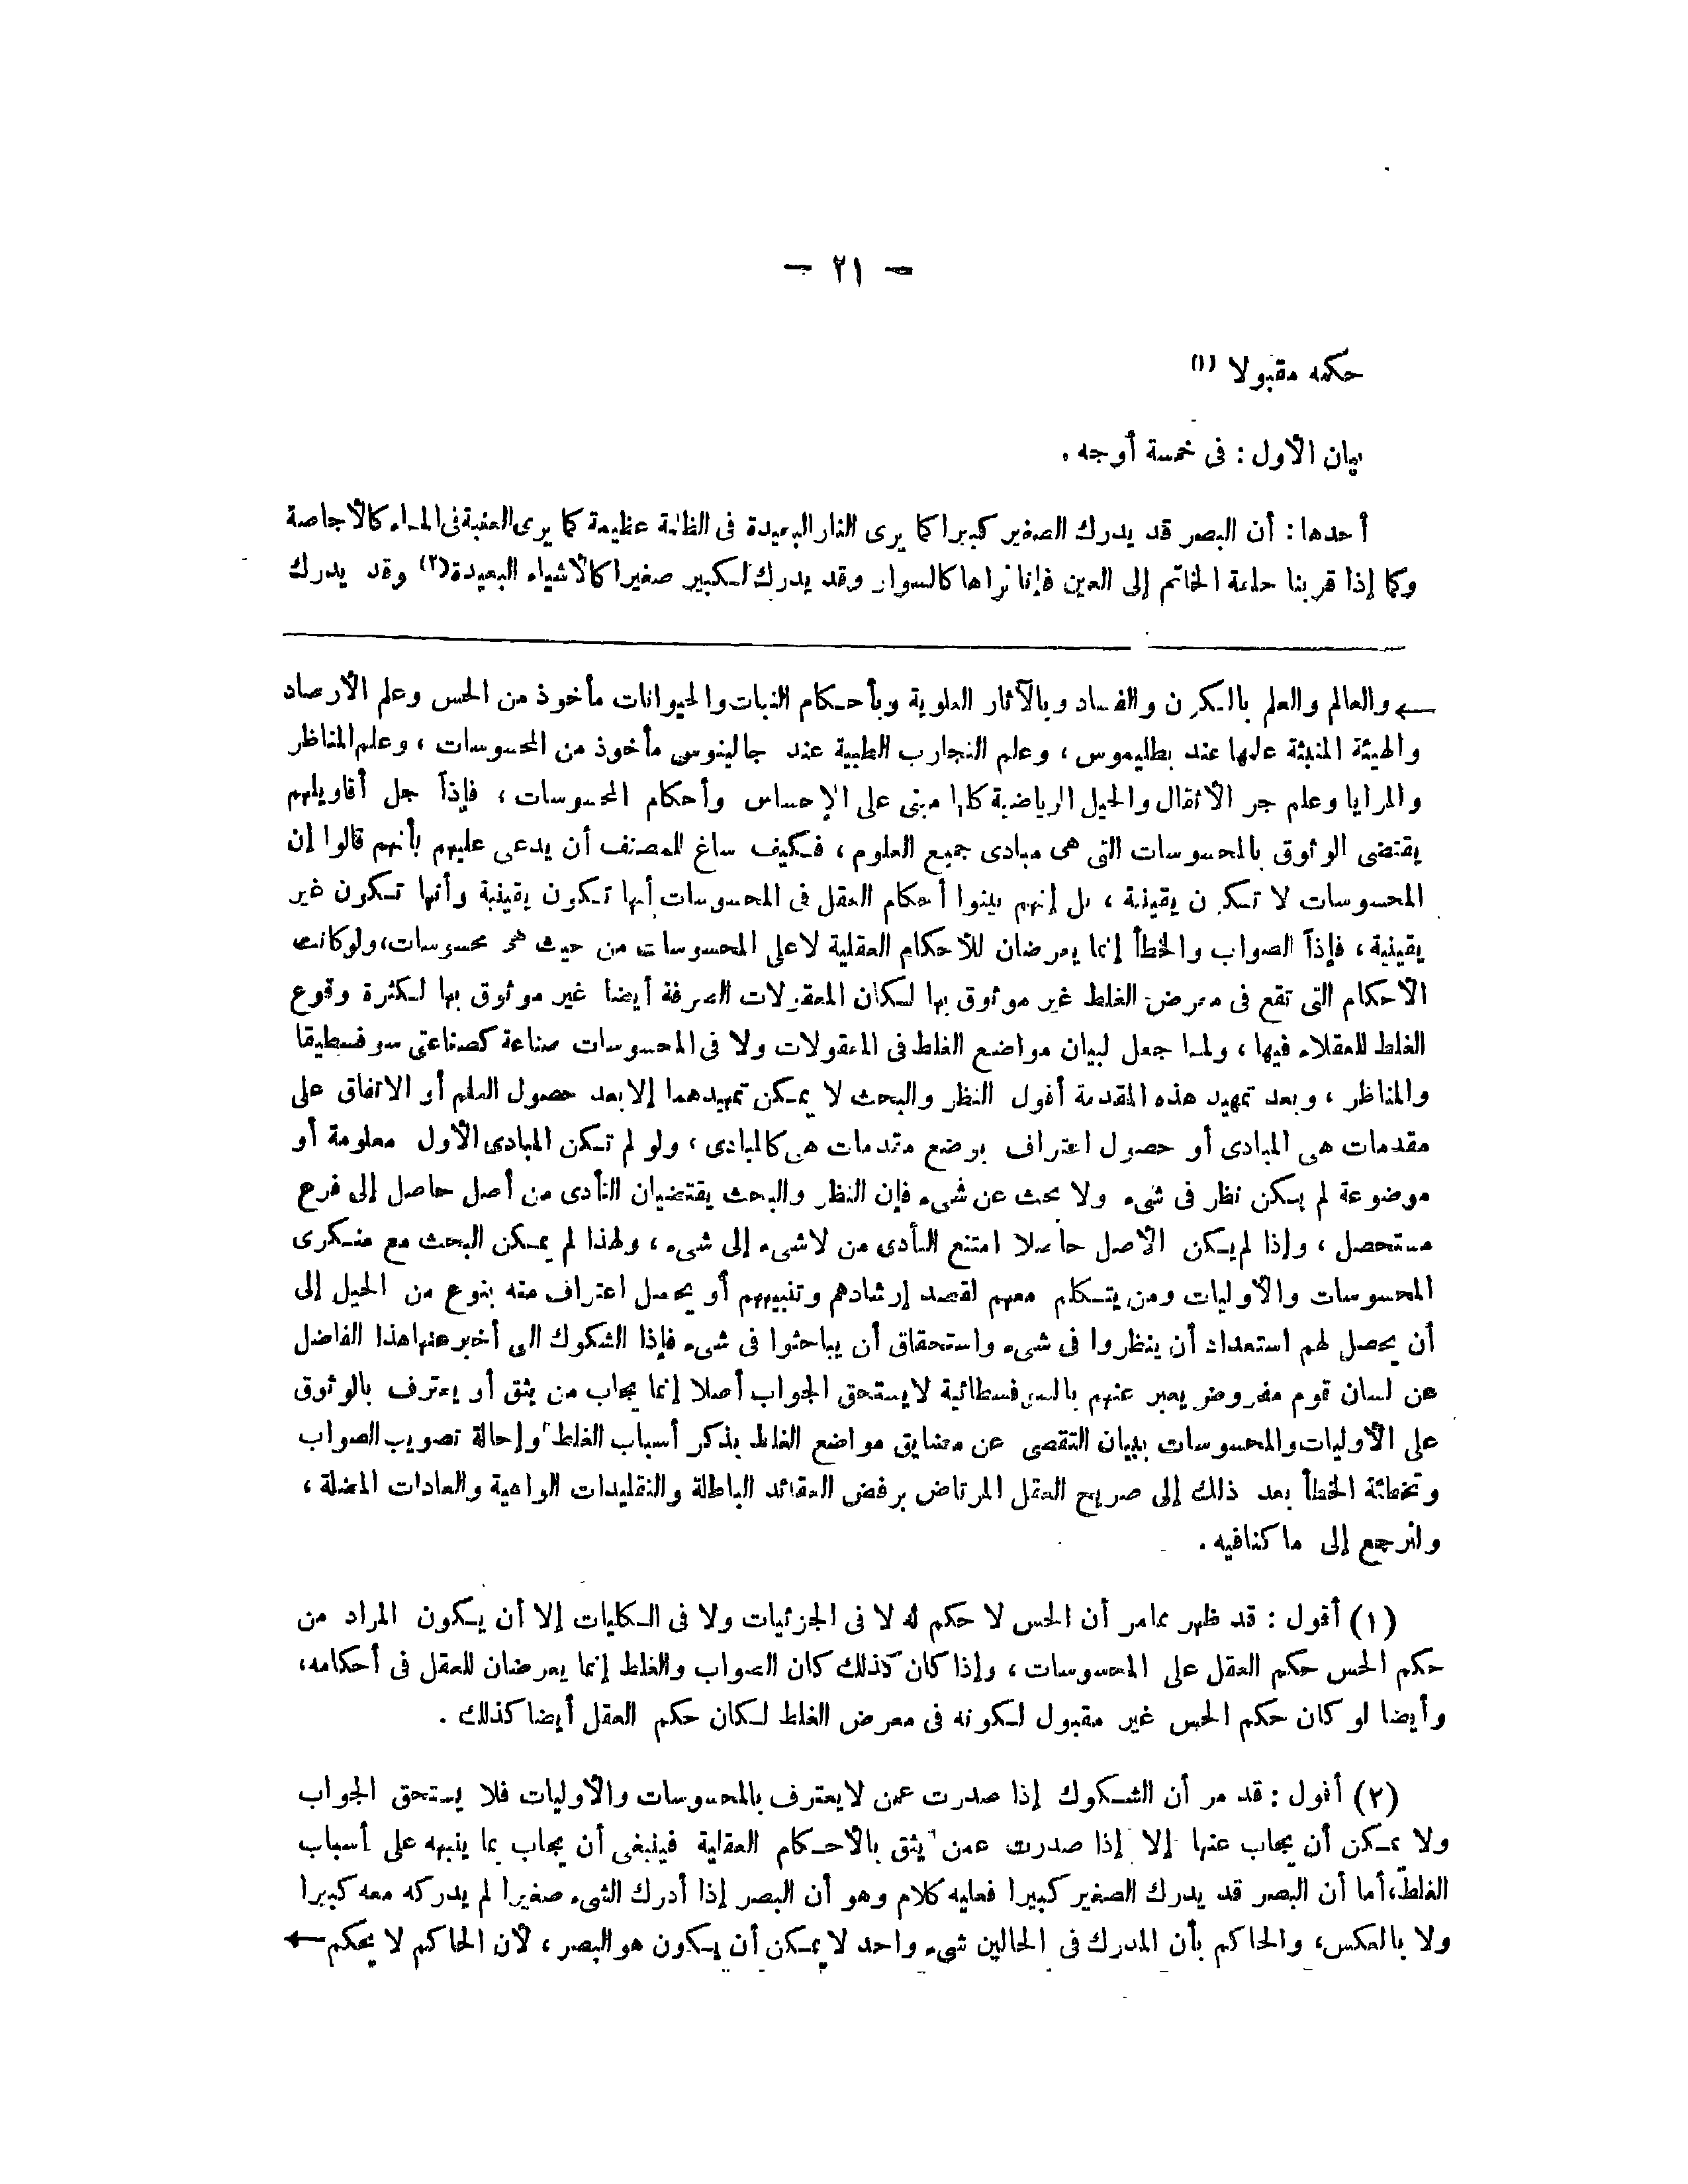 — ٢١ —
حكمه مقبولا (١)
بيان الأول : فى خمسة أوجه .
أحدها : أن البصر قد يدرك الصغير كبيرا كما يرى النار البعيدة فى الظلمة عظيمة كما يرى العنبة فى الماء كالأجاصة
وكما إذا قربنا حلقة الخاتم إلى العين فإنا نراها كالسوار وقد يدرك الكبير صغيرا كالأشياء البعيدة (٢) وقد يدرك
← والعالم والعلم بالكون والفساد وبالآثار العلوية وبأحكام النبات والحيوانات مأخوذ من الحس وعلم الأرصاد
والهيئة المنبئة عليها عند بطليموس ، وعلم التجارب الطبية عند جالينوس مأخوذ من المحسوسات ، وعلم المناظر
والمرايا وعلم جر الأثقال والحيل الرياضية كلها مبنى على الإحساس وأحكام المحسوسات ، فإذاً جل أقاويلهم
يقتضى الوثوق بالمحسوسات التى هى مبادى جميع العلوم ، فكيف ساغ للمصنف أن يدعى عليهم بأنهم قالوا إن
المحسوسات لا تكون يقينية ، بل إنهم بينوا أحكام العقل فى المحسوسات أيها تكون يقينية وأنها تكون غير
يقينية ، فإذاً الصواب والخطأ إنما يعرضان للأحكام العقلية لا على المحسوسات من حيث هى محسوسات، ولو كانت
الأحكام التى تقع فى معرض الغلط غير موثوق بها لكان المعقولات الصرفة أيضا غير موثوق بها لكثرة وقوع
الغلط للعقلاء فيها ، ولما جعل لبيان مواضع الغلط فى المعقولات ولا فى المحسوسات صناعة كصناعتى سوفسطيقا
والمناظر ، وبعد تمهيد هذه المقدمة أقول النظر والبحث لا يمكن تمهيدهما إلا بعد حصول العلم أو الاتفاق على
مقدمات هى المبادى أو حصول اعتراف بوضع مقدمات هى كالمبادى ، ولو لم تكن المبادى الأول معلومة أو
موضوعة لم يكن نظر فى شىء ولا بحث عن شىء فإن النظر والبحث يقتضيان التأدى من أصل حاصل إلى فرع
مستحصل ، وإذا لم يكن الأصل حاصلا امتنع التأدى من لا شىء إلى شىء ، ولهذا لم يمكن البحث مع منكرى
المحسوسات والأوليات ومن يتكلم معهم لقصد إرشادهم وتنبيههم أو يحصل اعتراف منه بنوع من الحيل إلى
أن يحصل لهم استعداد أن ينظروا فى شىء واستحقاق أن يباحثوا فى شىء فإذا الشكوك التى أخبر عنها هذا الفاضل
عن لسان قوم مفروض يعبر عنهم بالسوفسطائية لا يستحق الجواب أصلا إنما يجاب من يثق أو يعترف بالوثوق
على الأوليات والمحسوسات ببيان التقصى عن مضايق مواضع الغلط بذكر أسباب الغلط وإحالة تصويب الصواب
وتخطئة الخطأ بعد ذلك إلى صريح العقل المرتاض برفض العقائد الباطلة والتقليدات الواهية والعادات المضلة ،
ولنرجع إلى ما كنا فيه .
(١) أقول : قد ظهر مما مر أن الحس لا حكم له لا فى الجزئيات ولا فى الكليات إلا أن يكون المراد من
حكم الحس حكم العقل على المحسوسات ، وإذا كان كذلك كان الصواب والغلط إنما يعرضان للعقل فى أحكامه،
وأيضا لو كان حكم الحس غير مقبول لكونه فى معرض الغلط لكان حكم العقل أيضا كذلك .
(٢) أقول : قد مر أن الشكوك إذا صدرت عمن لا يعترف بالمحسوسات والأوليات فلا يستحق الجواب
ولا يمكن أن يجاب عنها إلا إذا صدرت عمن يثق بالأحكام العقلية فينبغى أن يجاب بما ينبهه على أسباب
الغلط، أما أن البصر قد يدرك الصغير كبيرا فعليه كلام وهو أن البصر إذا أدرك الشىء صغيرا لم يدركه معه كبيرا
ولا بالعكس، والحاكم بأن المدرك فى الحالين شىء واحد لا يمكن أن يكون هو البصر ، لأن الحاكم لا يحكم ←